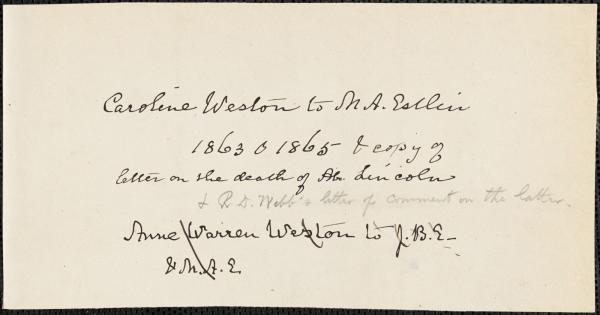 Caroline Weston to M. A. Estlin
1863 & 1865 & copy of
letter on the death of Ab. Lincoln
& R. D. Webb's letter of comment on the latter.
Anne Warren Weston to J. B. E.
& M. A. E